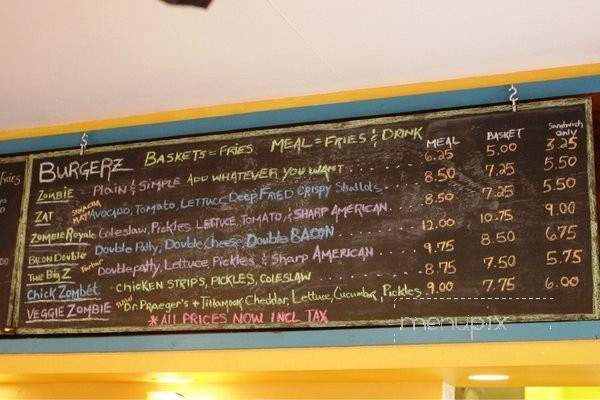 BURGERZ BASKETS = FRIES MEAL = FRIES & DRINK MEAL BASKET Sandwich only
ZOMBIE PLAIN & SIMPLE ADD WHATEVER YOU WANT 6.25 5.00 3.25
ZAT SRIRACHA MAYO AVOCADO, TOMATO, LETTUCE, DEEP FRIED CRISPY SHALLOTS 8.50 7.25 5.50
ZOMBIE Royale Coleslaw, Pickles, LETTUCE, TOMATO, & SHARP AMERICAN 8.50 7.25 5.50
BACON Double Double Patty, Double Cheese, Double BACON 12.00 10.75 9.00
THE Big Z Double patty, Lettuce, Pickles, & Sharp AMERICAN 9.75 8.50 6.75
Chick ZombEt CHICKEN STRIPS, PICKLES, COLESLAW 8.75 7.50 5.75
VEGGIE ZOMBIE Dr. Praeger's + Tillamook Cheddar, Lettuce, Cucumber, Pickles 9.00 7.75 6.00
*ALL PRICES NOW INCL TAX
menupix